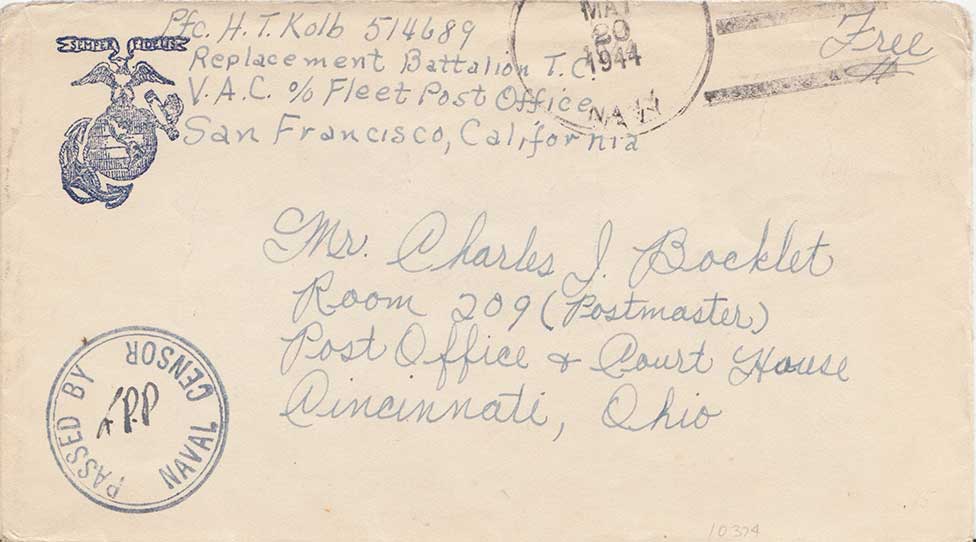 SEMPER FIDELIS
Pfc. H. T. Kolb 514689
Replacement Battalion T.C.
V.A.C. % Fleet Post Office
San Francisco, California
MAY
20
1944
NAVY
Free
Mr. Charles J. Bocklet
Room 209 (Postmaster)
Post Office & Court House
Cincinnati, Ohio
PASSED BY
NAVAL CENSOR
10374